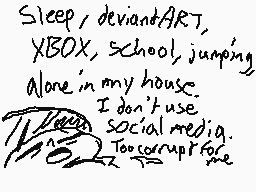 Sleep, deviantART,
XBOX, school, jumping,
alone in my house.
I don't use
social media.
Too corrupt for
me